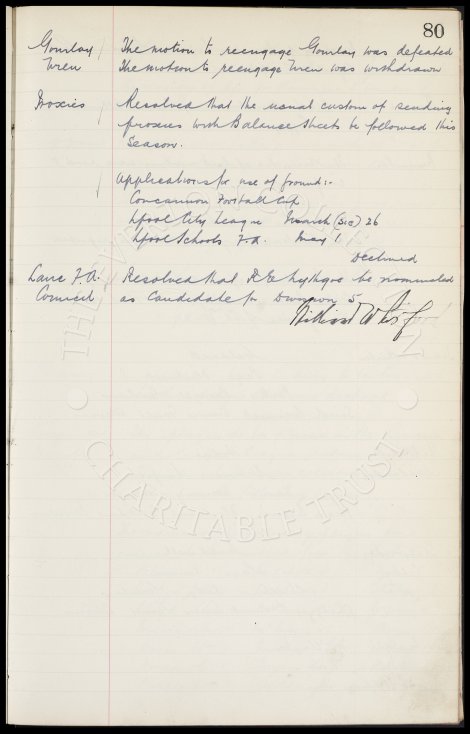 80
Gourlay / The motion to reengage Gourlay was defeated
Wren The motion to reengage Wren was withdrawn
Proxies / Resolved that the usual custom of sending
proxies with Balance Sheets be followed this
Season.
/ Applications for use of ground:-
Concannon Football Cup
Lpool City League March (sic) 26
Lpool Schools F.A. May 1
Declined
Lanc F.A. Resolved that R E Lythgoe be nominated
Council as Candidate for Division 5
William
THE EVERTON
CHARITABLE TRUST